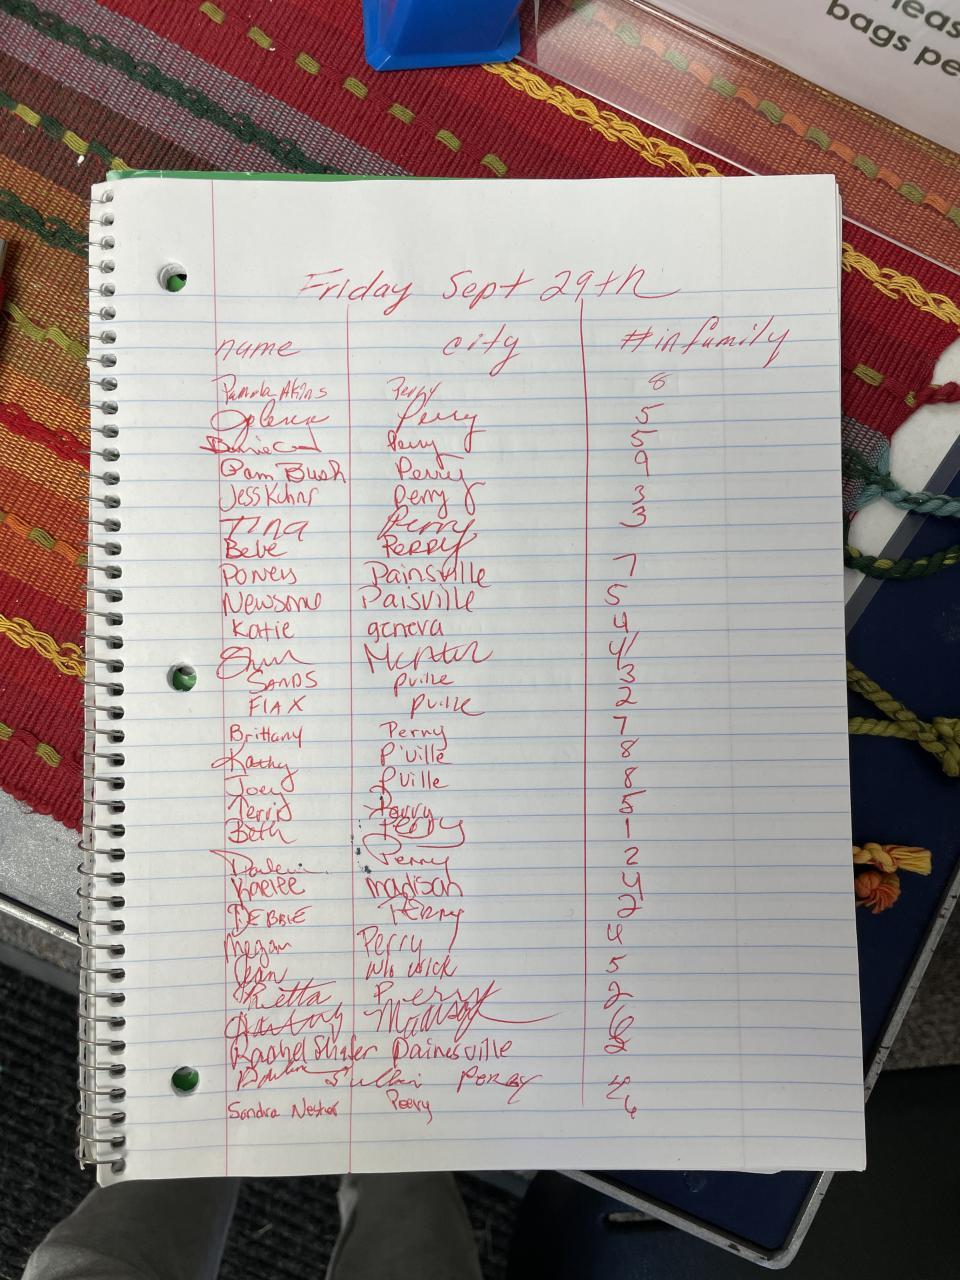 leas
bags pe
Friday Sept 29th
name city # in family
Pamela Akins Perry 8
Perry 5
Perry 5
Pam Bush Perry 9
Jess Kuhar Perry 3
Tina Perry 3
Bebe PERRY
Powers Painsville 7
Newsome Paisville 5
Katie geneva 4
Mentor 4
SANDS pville 3
FlAX pville 2
Brittany Perry 7
Kathy P'ville 8
Joey Pville 8
Terri Perry 5
Beth Perry 1
Perry 2
Kaelee madison 4
DEBBIE PERRY 2
Megan Perry 4
Jean 5
Retta Perry 2
Madison 6
Rachel Shafer Painesville 2
Perry 4
Sandra Perry 6